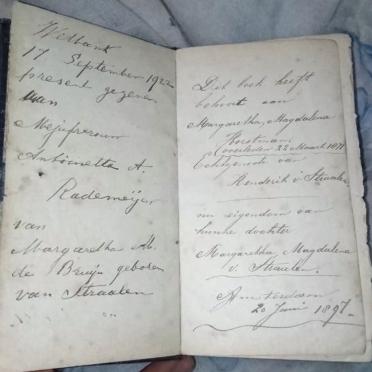 Witbank
17 September 1922
present gegeven
van
Mejufvrouw
Antoinetta A.
Rademeijer
van
Margaretha M.
de Bruijn geboren
van Straalen
Dit boek heeft
behoort aan
Margaretha, Magdalena
Horstman
overleden 22 Maart 1871
Echtgenoot van
Henderik v Straalen
nu eigendom van
hunne dochter
Margaretha, Magdalena
v. Straalen.
Amsterdam
20 Juni 1897.